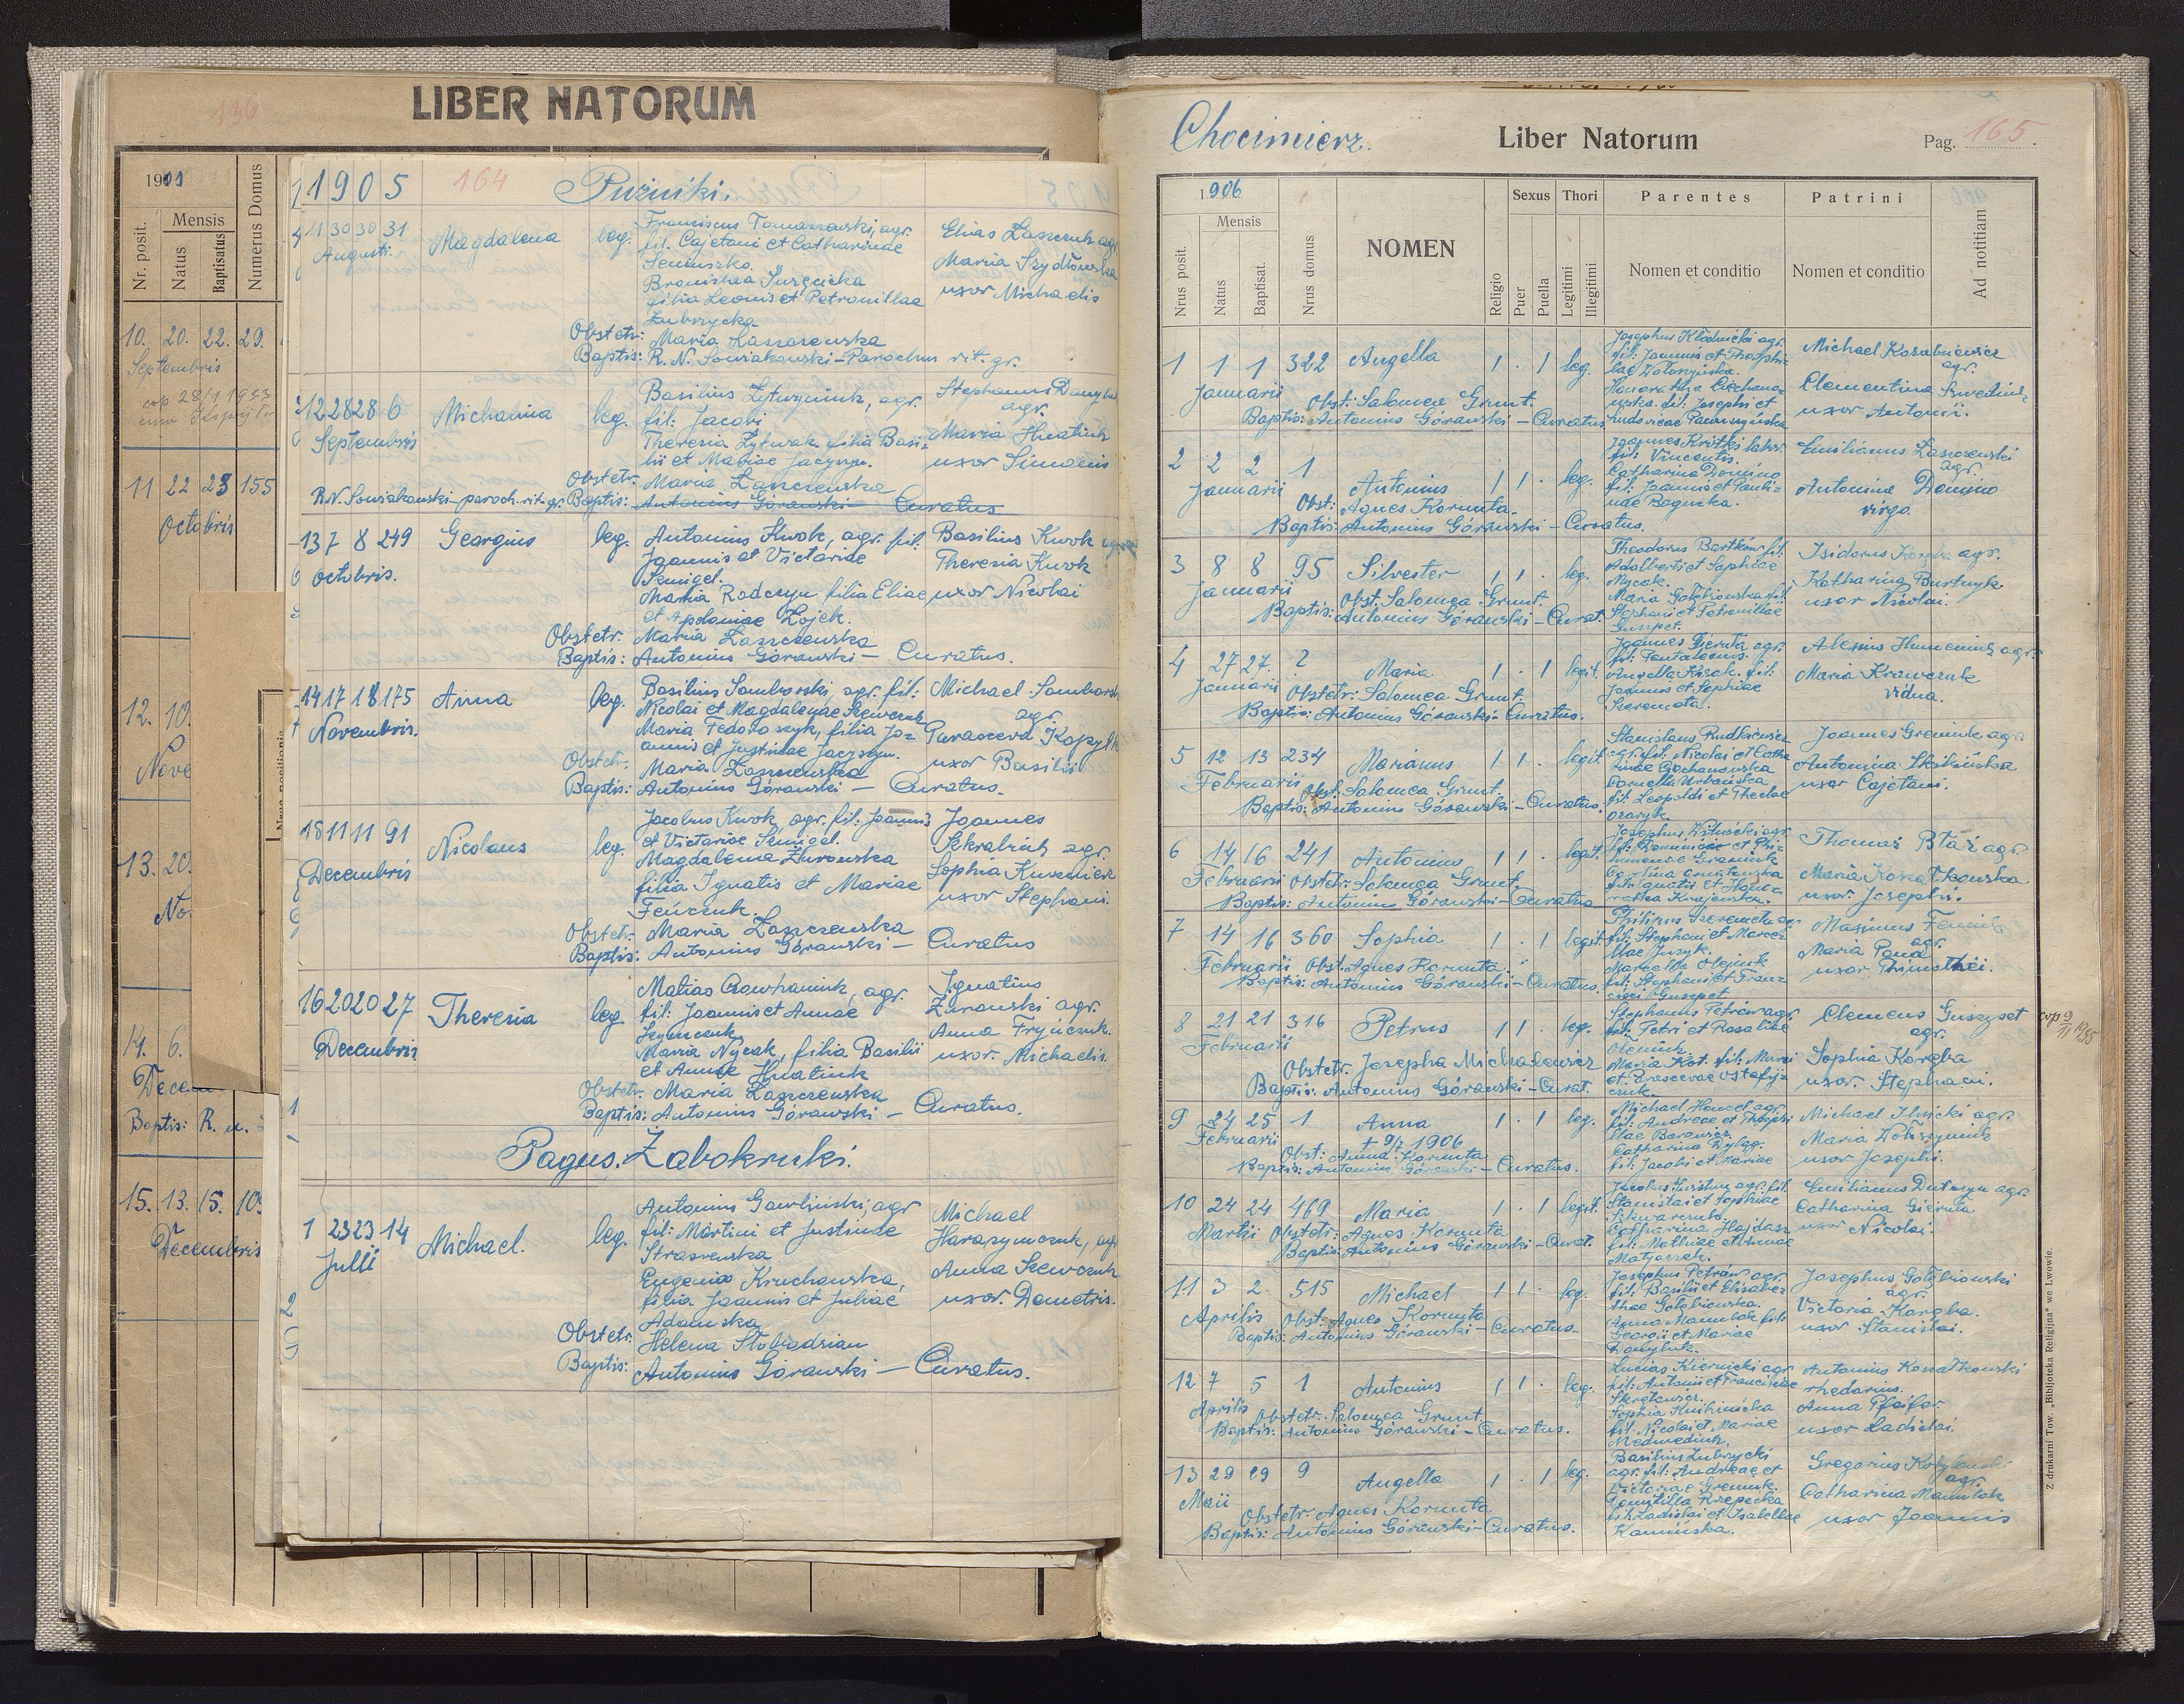 136
LIBER NATORUM
1903
Nr. posit.
Mensis
Natus
Baptisatus
Numerus Domus
10. 20. 22. 29.
Septembris
11 22 23 155
Octobris
12. 10.
Nove
13. 20.
No
14. 6.
Decem
Baptis: R. n.
15. 13. 15. 10
Decembris
1905 164 Puźniki.
11 30 30 31 Magdalena leg. Franciscus Tomaszewski, agr. Elias Laszczuk agr.
Augusti. fil. Cajetani et Catharinae
Maria Szydłowska
uxor Michaelis
filia Leonis et Petronillae
Zubrzycka
Obstetr: Maria Laszczewska
Baptis: R. N. Sowiakowski - Parochus rit. gr.
12 28 28 6 Michalina leg. Basilius Lytwyniuk, agr. Stephanus Danyluk
Septembris fil: Jacobi agr.
Theresia Lytwak filia Basi- Maria Hnatiuk
lii et Mariae Jacyszyn. uxor Simeonis
Obstetr. Maria Laszczewska
R.N. Sowiakowski paroch. rit. gr. Baptis: Antonius Górawski - Curatus
13 7 8 249 Georgius leg. Antonius Kwok, agr. fil: Basilius Kwok agr.
Octobris. Joannis et Victoriae Theresia Kwok
Szmigel.
Maria Radczyn filia Eliae uxor Nicolai
et Apoloniae Łojek.
Obstetr. Maria Laszczewska
Baptis: Antonius Górawski - Curatus.
14 17 18 175 Anna leg. Basilius Samborski, agr. fil: Michael Samborski
Novembris. Nicolai et Magdalenae Szewczuk agr.
Maria Fedoloszyk, filia Jo- Parasceva Kopyl
annis et Justinae Jacyszyn. uxor Basilii
Obstetr. Maria Laszczewska
Baptis: Antonius Górawski - Curatus.
15 11 11 91 Nicolaus leg. Jacobus Kwok agr. fil: Joannis Joannes
Decembris et Victoriae Szmigel. Sekrabiuk agr.
Magdalena Żurowska Sophia Kuszniera
filia Ignatis et Mariae uxor Stephani.
Feńczuk.
Obstetr. Maria Laszczewska
Baptis: Antonius Górawski - Curatus
16 20 20 27 Theresia leg Matias agr. Ignatius
Decembris fil: Joannis et Annae Żurawski agr.
Szymczuk Anna Fryńczuk.
Maria Nycak, filia Basilii uxor. Michaelis.
et Annae Hnatiuk
Obstetr. Maria Laszczewska
Baptis: Antonius Górawski - Curatus.
Pagus: Żabokruki.
1 23 23 14 Michael. leg. Antonius Gawliński, agr Michael
Julii fil: Martini et Justinae Harasymczuk, agr
Straszewska Anna Szewczuk
Eugenia Kruchowska, uxor. Demetris.
filia Joannis et Juliae
Adamska
Obstetr. Helena Stobodrian
Baptis: Antonius Górawski - Curatus.
Chocimierz. Liber Natorum Pag. 165.
1906
Nrus posit.
Mensis
Natus
Baptisat.
Nrus domus
NOMEN
Religio
Sexus
Puer
Puella
Thori
Legitimi
Illegitimi
Parentes
Nomen et conditio
Patrini
Nomen et conditio
Ad notitiam
1 1 1 322 Angella 1 . 1 leg. Josephus Kłodnicki agr. Michael
Januarii fil: Joannis et Theophi- agr.
lae Wołoszyńska. Clementina
Obst: Salomea Grunt. uxor Antonii.
Baptis: Antonius Górawski - Curatus
2 2 2 1 Antonius 1 1 . leg. Joannes Krótki labor. Emilianus Laszczewski
Januarii fil: Vincentis. agr.
Obst: Agnes Kormuta. Catharina Domino Antonina Domino
fil: Joannis et Pauli- virgo.
nae Bagucka.
Baptis: Antonius Górawski - Curatus.
3 8 8 95 Silvester 1 1 . leg. Theodorus Bartków fil: Isidorus Korgba agr.
Januarii Adalberti et Sophiae Katharina Burtnyk
Nycak. uxor Nicolai.
Obst. Salomea Grunt. Maria Gołębiowska fil:
Stephani et Petronillae
Baptis: Antonius Górawski - Curat. Guszpet.
4 27 27. 2 Maria 1 . 1 legit. Joannes Gieruta agr. Alexius Humeniuk agr.
Januarii fil: Pantaleonis. Maria Krawczuk
Angella Kisak. fil: vidua.
Obstetr: Salomea Grunt. Joannis et Sophiae
Baptis: Antonius Górawski - Curatus. Szeremeta.
5 12 13 234 Marianus 1 1 . legit. Stanislaus Rudkiewicz Joannes Greniuk agr
Februarii agr. fil: Nicolai et Catha Antonina Skibińska
rinae Ciechanowska uxor Cajetani.
Obst. Salomea Grunt. Cornelia Urbańska
Baptis: Antonius Górawski - Curatus. fil: Leopoldi et Theclae
6 14 16 241 Antonius 1 1 . legit. Josephus agr. Thomas Błaż agr.
Februarii Obstetr: Salomea Grunt. Maria
Baptis: Antonius Górawski - Curatus uxor. Josephi.
7 14 16 360 Sophia 1 . 1 legit. Philipus Szeremeta agr Maximus
Februarii fil: Stephani et Marce- agr.
llae Juzyk. Maria Pona
Obst. Agnes Kormuta. Marcella Olejnik uxor Thimothei.
Baptis: Antonius Górawski - Curatus. fil: Stephani et Fran-
cisci Guszpet
8 21 21 316 Petrus 1 1 . leg. Stephanus Petrów agr. Clemens Guszpet
Februarii fil: Petri et Rosaliae agr.
Olejnik. Sophia Korgba
Obstetr. Josepha Michalewicz Maria Kot. fil: Marci uxor. Stephani.
Baptis: Antonius Górawski - Curat. czuk.
9 24 25 1 Anna 1 . 1 leg. Michael Hencel agr. Michael Ilnicki agr.
Februarii † 9/7 1906 fil: Andreae et Theophi Maria Wołoszyniuk
llae Baranwicz. uxor Josephi.
Obst: Anna Kormuta Catharina Rylag.
Baptis: Antonius Górawski - Curatus. fil: Jacobi et Mariae
10 24 24 469 Maria 1 . 1 legit. Jacobus agr. fil. Emilianus Dutczyn agr.
Martii Stanislai et Sophiae Catharina Gieruta
Obstetr: Agnes Kormuta Catharina Hajdasz uxor Nicolai.
Baptis: Antonius Górawski - Curat. fil: Mathiae et Annae
11 3 2. 515 Michael 1 1 . leg. Josephus Petrów agr. Josephus Gołębiowski
Aprilis fil: Basilii et Elisabe- agr.
thae Gołębiowska. Victoria Korgba.
Obst: Agnes Kormuta Anna Manulak fil: uxor Stanislai.
Georgii et Mariae
Baptis: Antonius Górawski - Curatus. Danyluk.
12 7 5 1 Antonius 1 1 . leg. Lucias Kiernicki agr Antonius Konatkowski
Aprilis fil: Antonii et Franciscae rhedarius.
Obstetr. Salomea Grunt. Sophia Anna Pfeifer
Baptis: Antonius Górawski - Curatus. fil. Nicolai et Mariae uxor Ladislai.
Medwediuk.
13 29 29 9 Angella 1 . 1 leg. Basilius Zubrycki Gregorius
Maii agr. fil: Andreae et agr.
Victoriae Greniuk. Catharina Manulak
Obstetr. Agnes Kormuta Domitilla Krzepecka uxor Joannis
fil: Ladislai et Isabellae
Baptis: Antonius Górawski - Curatus. Kamińska.
Z drukarni Tow. „Bibljoteka Religijna" we Lwowie.